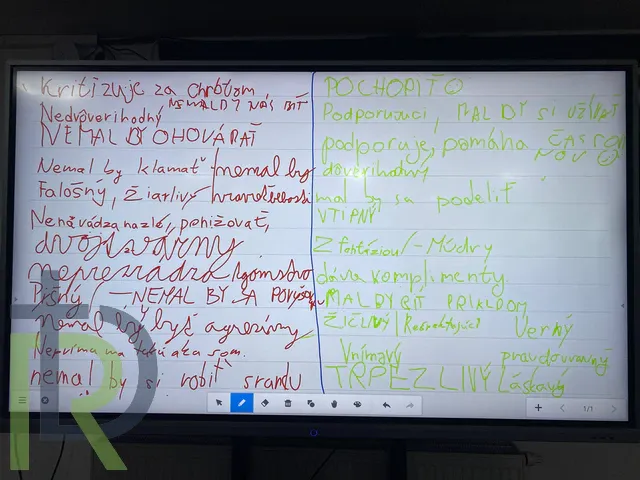 Kritizuje za chrbtom
NEMAL BY NÁS BIŤ
Nedôverihodný
NEMAL BY OHOVÁRAŤ
Nemal by klamať
nemal by
Falošný, žiarlivý
hrave
Nenavádza na zlé, ponižovať,
dvojtvárny
neprezrádza
Pyšný
NEMAL BY SA
Nemal by byť agresívny
Neprima ma takú aka som.
nemal by si robiť srandu
POCHOPIŤ
Podporujúci, MAL BY SI
podporuje, pomáha,
dôverihodný
mal by sa podeliť
VTIPNÝ
Z fantáziou/- Múdry
dáva komplimenty
MAL BY BYŤ PRÍKLDOM
ŽIČLIVÝ Rešpektujúci Verný
Vnímavý pravdovravný
TRPEZLIVÝ Láskavý
1/1
TDR